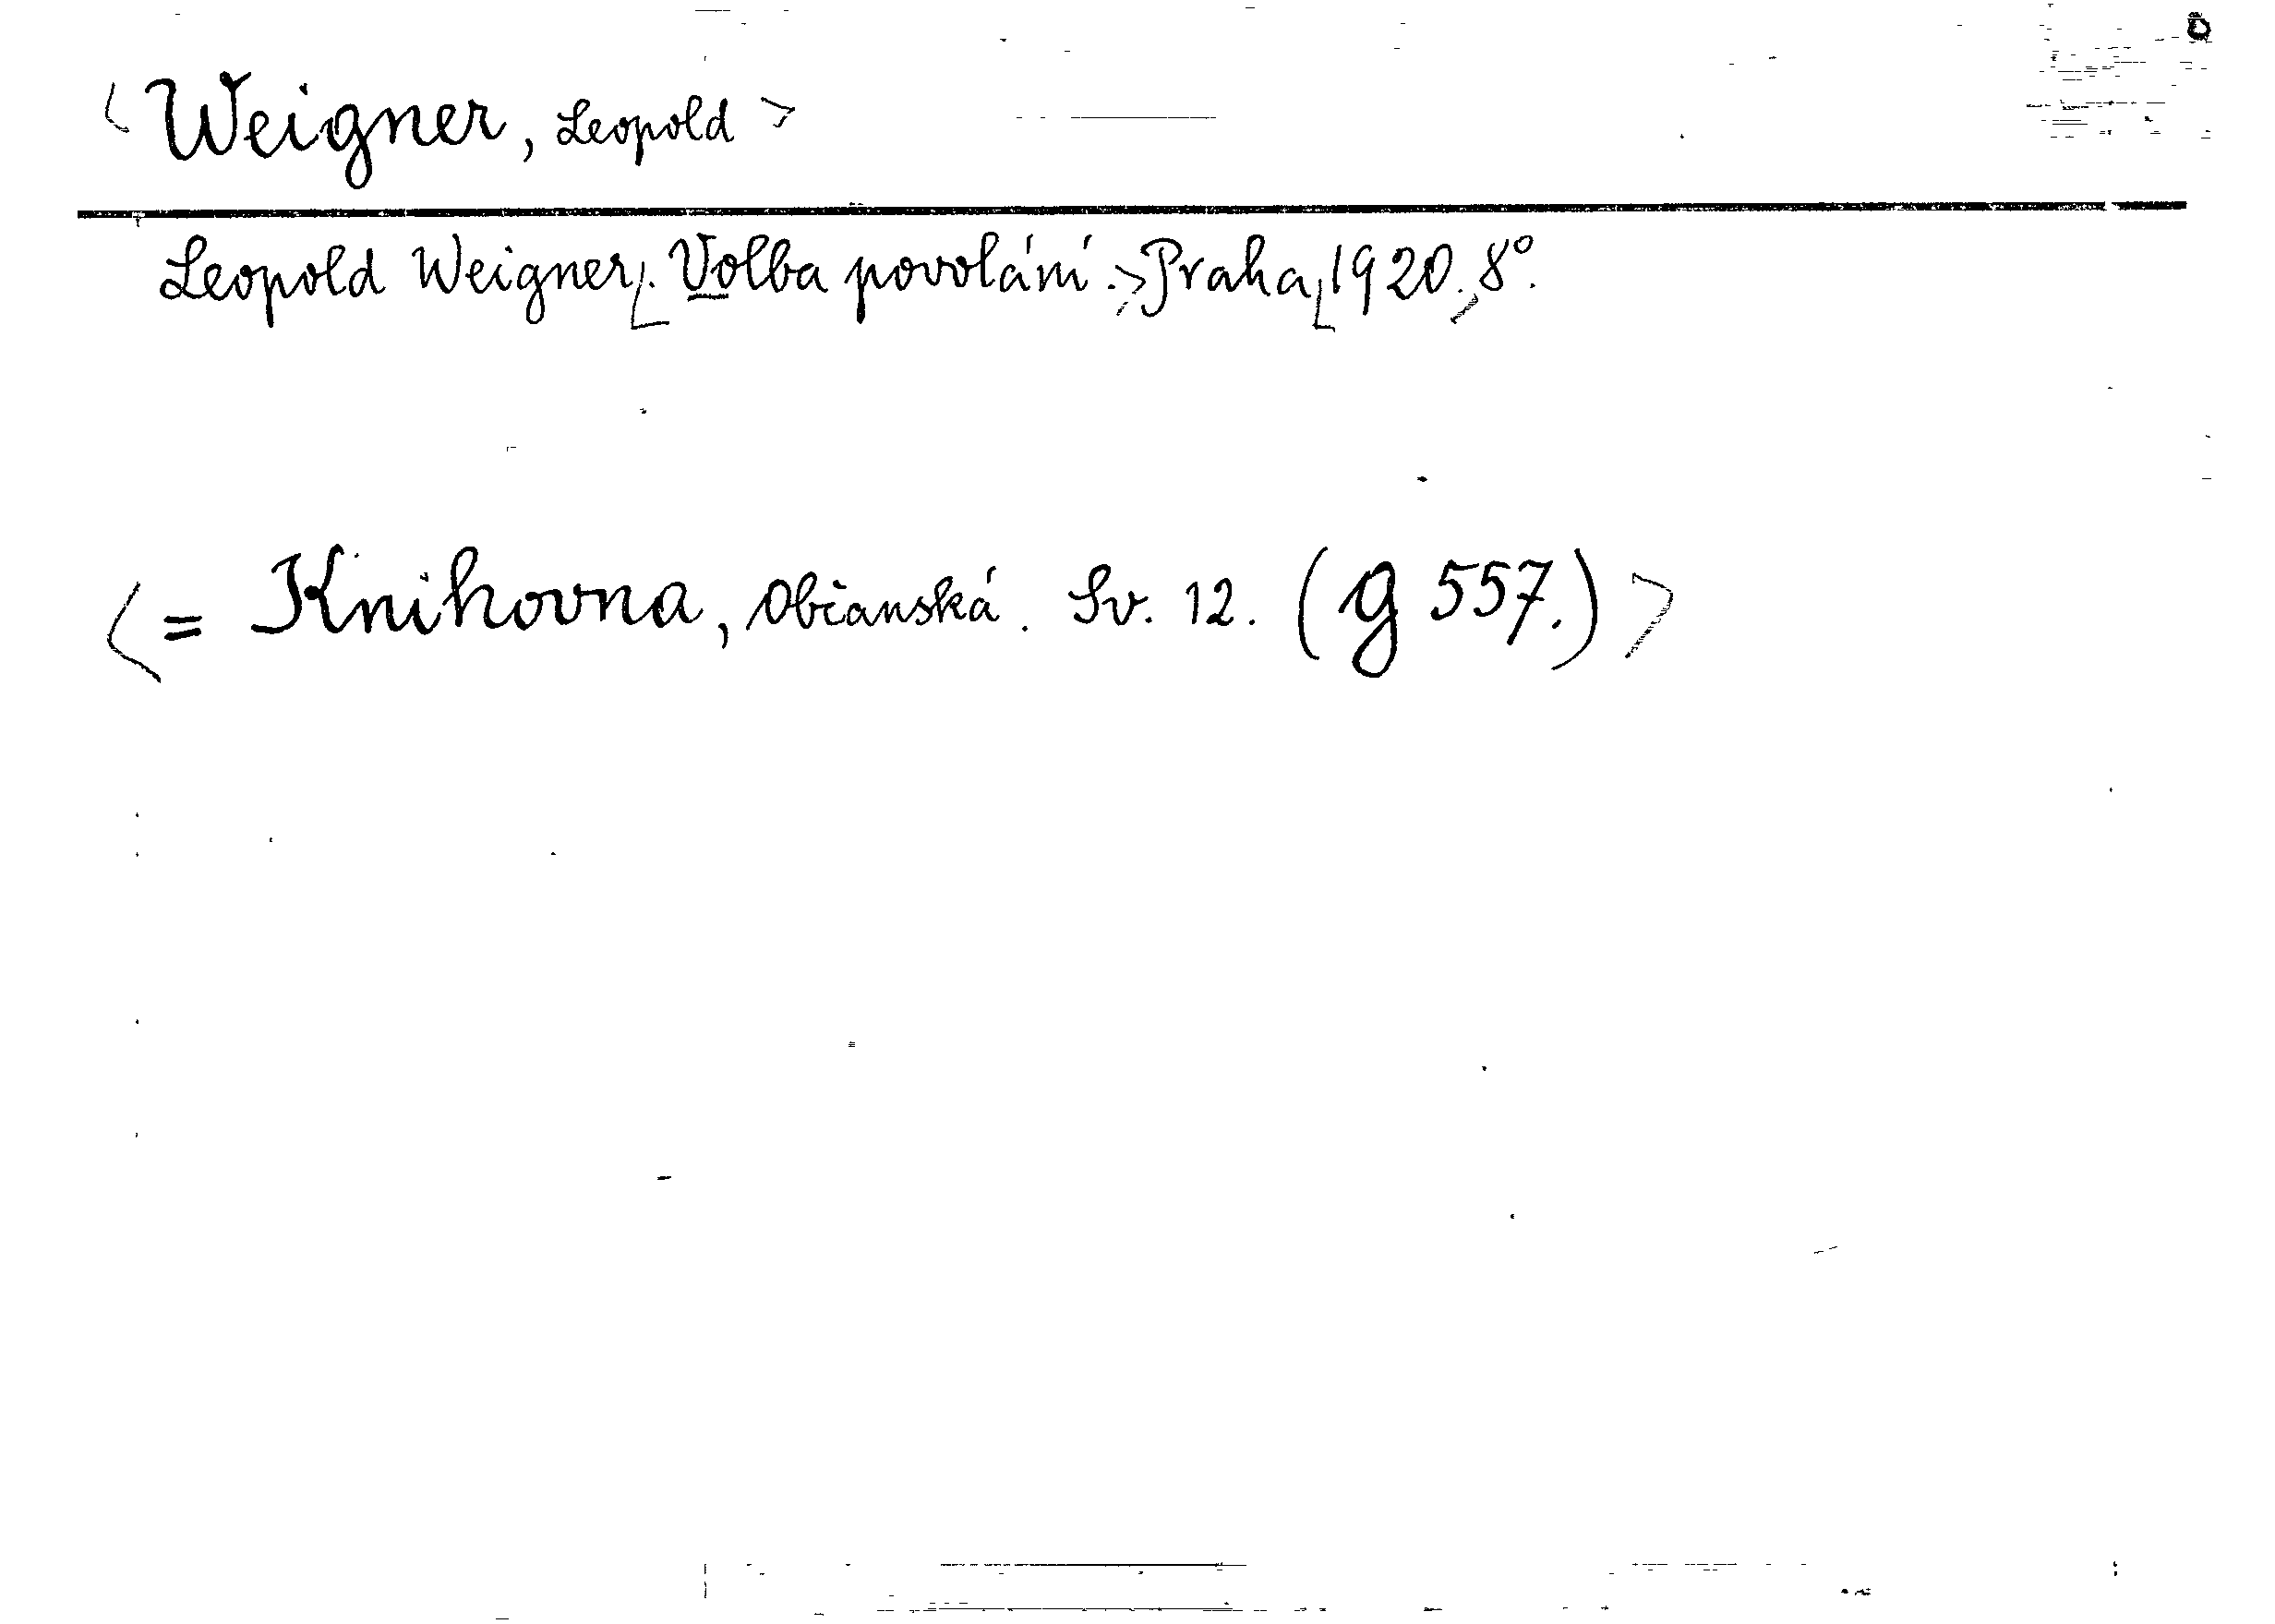 <Weigner, Leopold>
Leopold Weigner[. Volba povolání.> Praha[1920.> 8°.
<= Knihovna, Občanská. Sv. 12. (g 557.)>